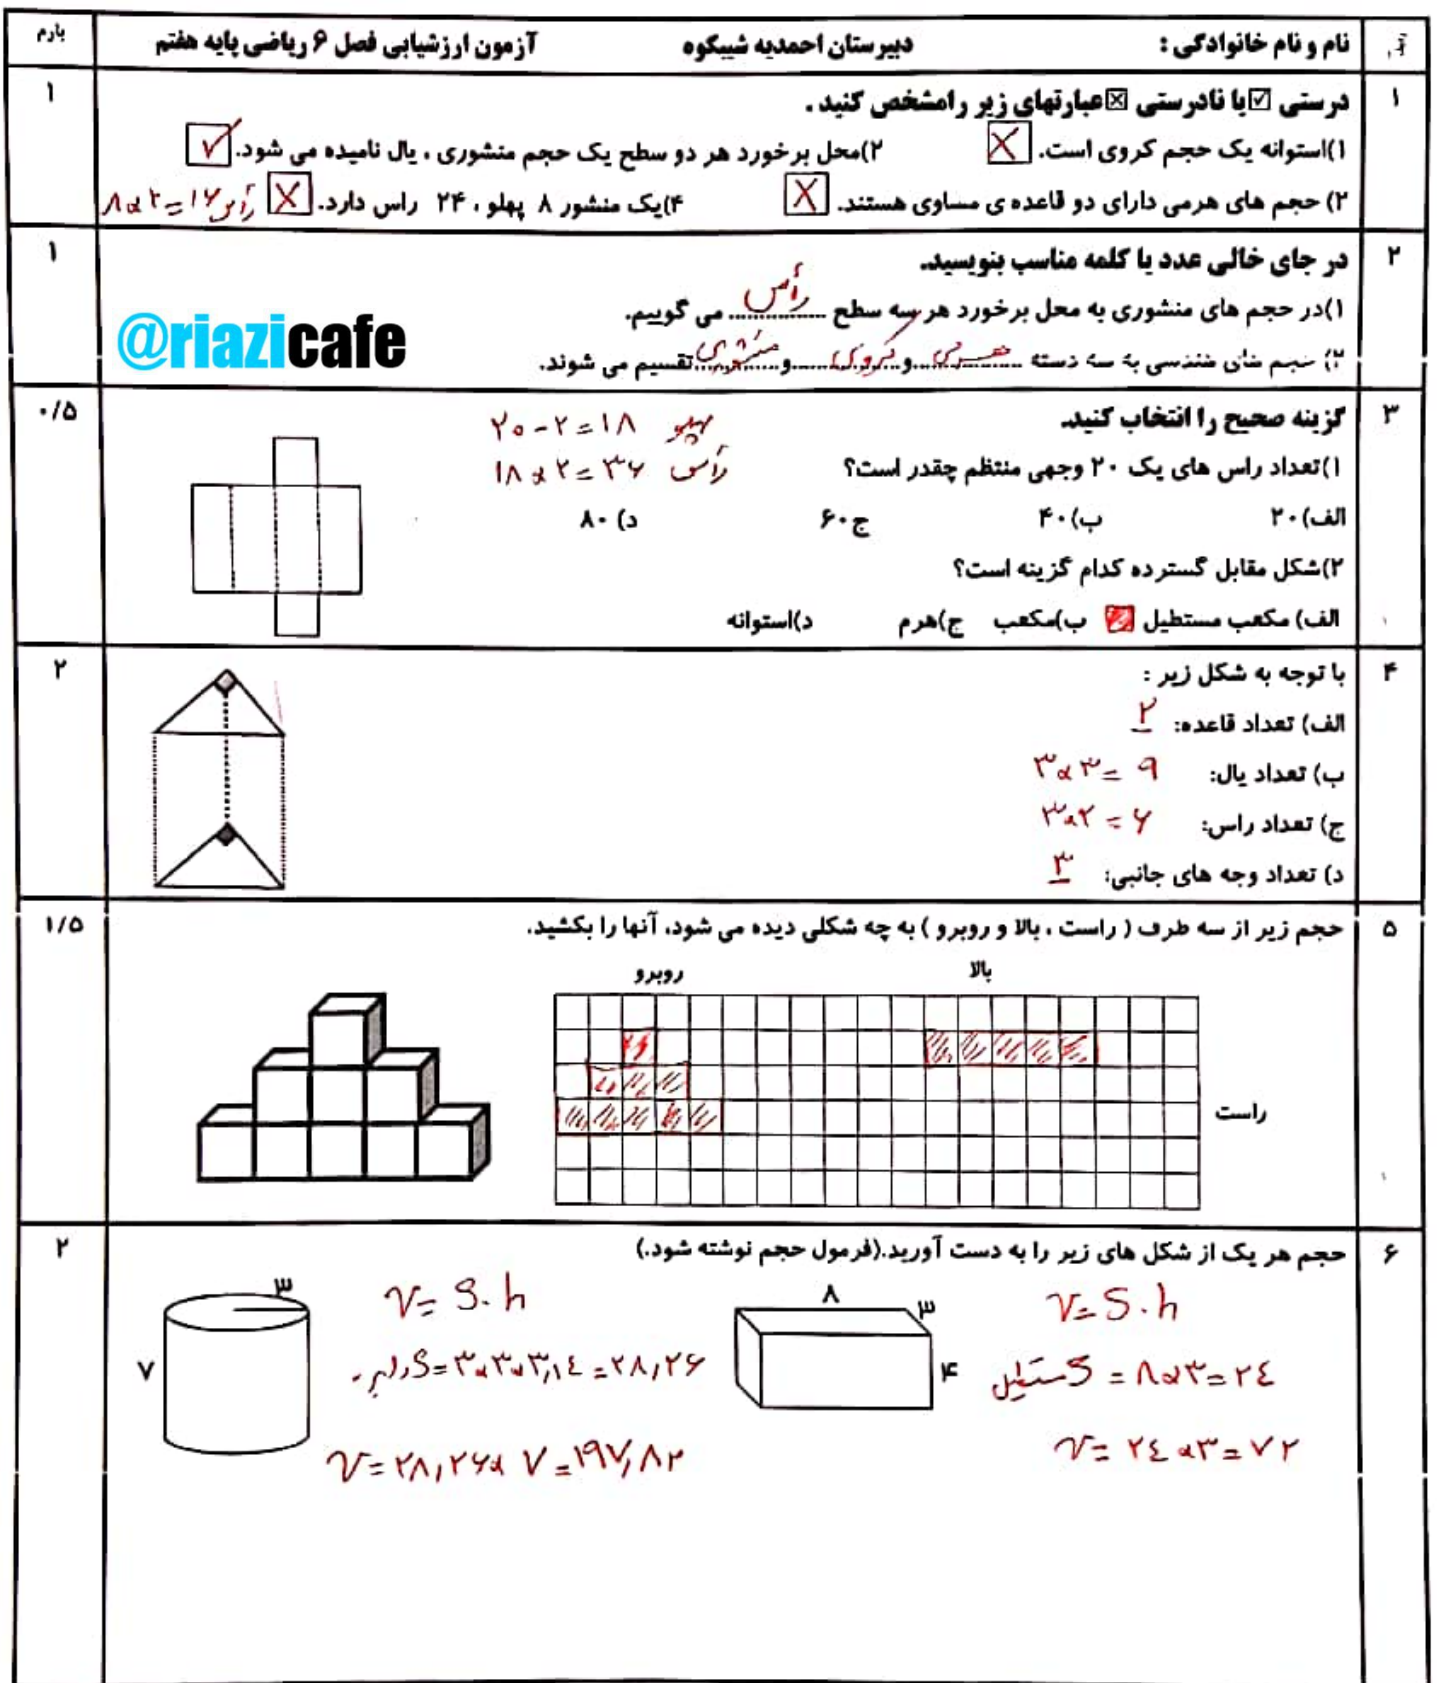 نام و نام خانوادگی : دبیرستان احمدیه شیبکوه آزمون ارزشیابی فصل ۶ ریاضی پایه هفتم بارم
۱ درستی ☑ یا نادرستی ☒ عبارتهای زیر رامشخص کنید . ۱
۱)استوانه یک حجم کروی است. X ۲)محل برخورد هر دو سطح یک حجم منشوری ، یال نامیده می شود. ✓
۲) حجم های هرمی دارای دو قاعده ی مساوی هستند. X ۴)یک منشور ۸ پهلو ، ۲۴ راس دارد. X رأس ۸×۲=۱۶
۲ در جای خالی عدد یا کلمه مناسب بنویسید. ۱
۱)در حجم های منشوری به محل برخورد هر سه سطح ....رأس.... می گوییم.
@riazicafe
۲) حجم های هندسی به سه دسته ....هرمی....و....کروی....و....منشوری....تقسیم می شوند.
۳ گزینه صحیح را انتخاب کنید. ۰/۵
پهلو ۲۰-۲=۱۸
۱)تعداد راس های یک ۲۰ وجهی منتظم چقدر است؟ رأس ۱۸×۲=۳۶
الف)۲۰ ب)۴۰ ج۶۰ د) ۸۰
۲)شکل مقابل گسترده کدام گزینه است؟
الف) مکعب مستطیل ب)مکعب ج)هرم د)استوانه
۴ با توجه به شکل زیر : ۲
الف) تعداد قاعده: ۲
ب) تعداد یال: ۳×۳=۹
ج) تعداد راس: ۳×۲=۶
د) تعداد وجه های جانبی: ۳
۵ حجم زیر از سه طرف ( راست ، بالا و روبرو ) به چه شکلی دیده می شود، آنها را بکشید. ۱/۵
بالا روبرو
راست
۶ حجم هر یک از شکل های زیر را به دست آورید.(فرمول حجم نوشته شود.) ۲
V=S.h ۸ ۳ ۴
S مستطیل = ۸×۳=۲٤
V= ۲٤×۳=۷۲
V=S.h ۳ ۷
S=۳×۳×۳,۱٤=۲۸,۲۶
V=۲۸,۲۶×۷=۱۹۷,۸۲